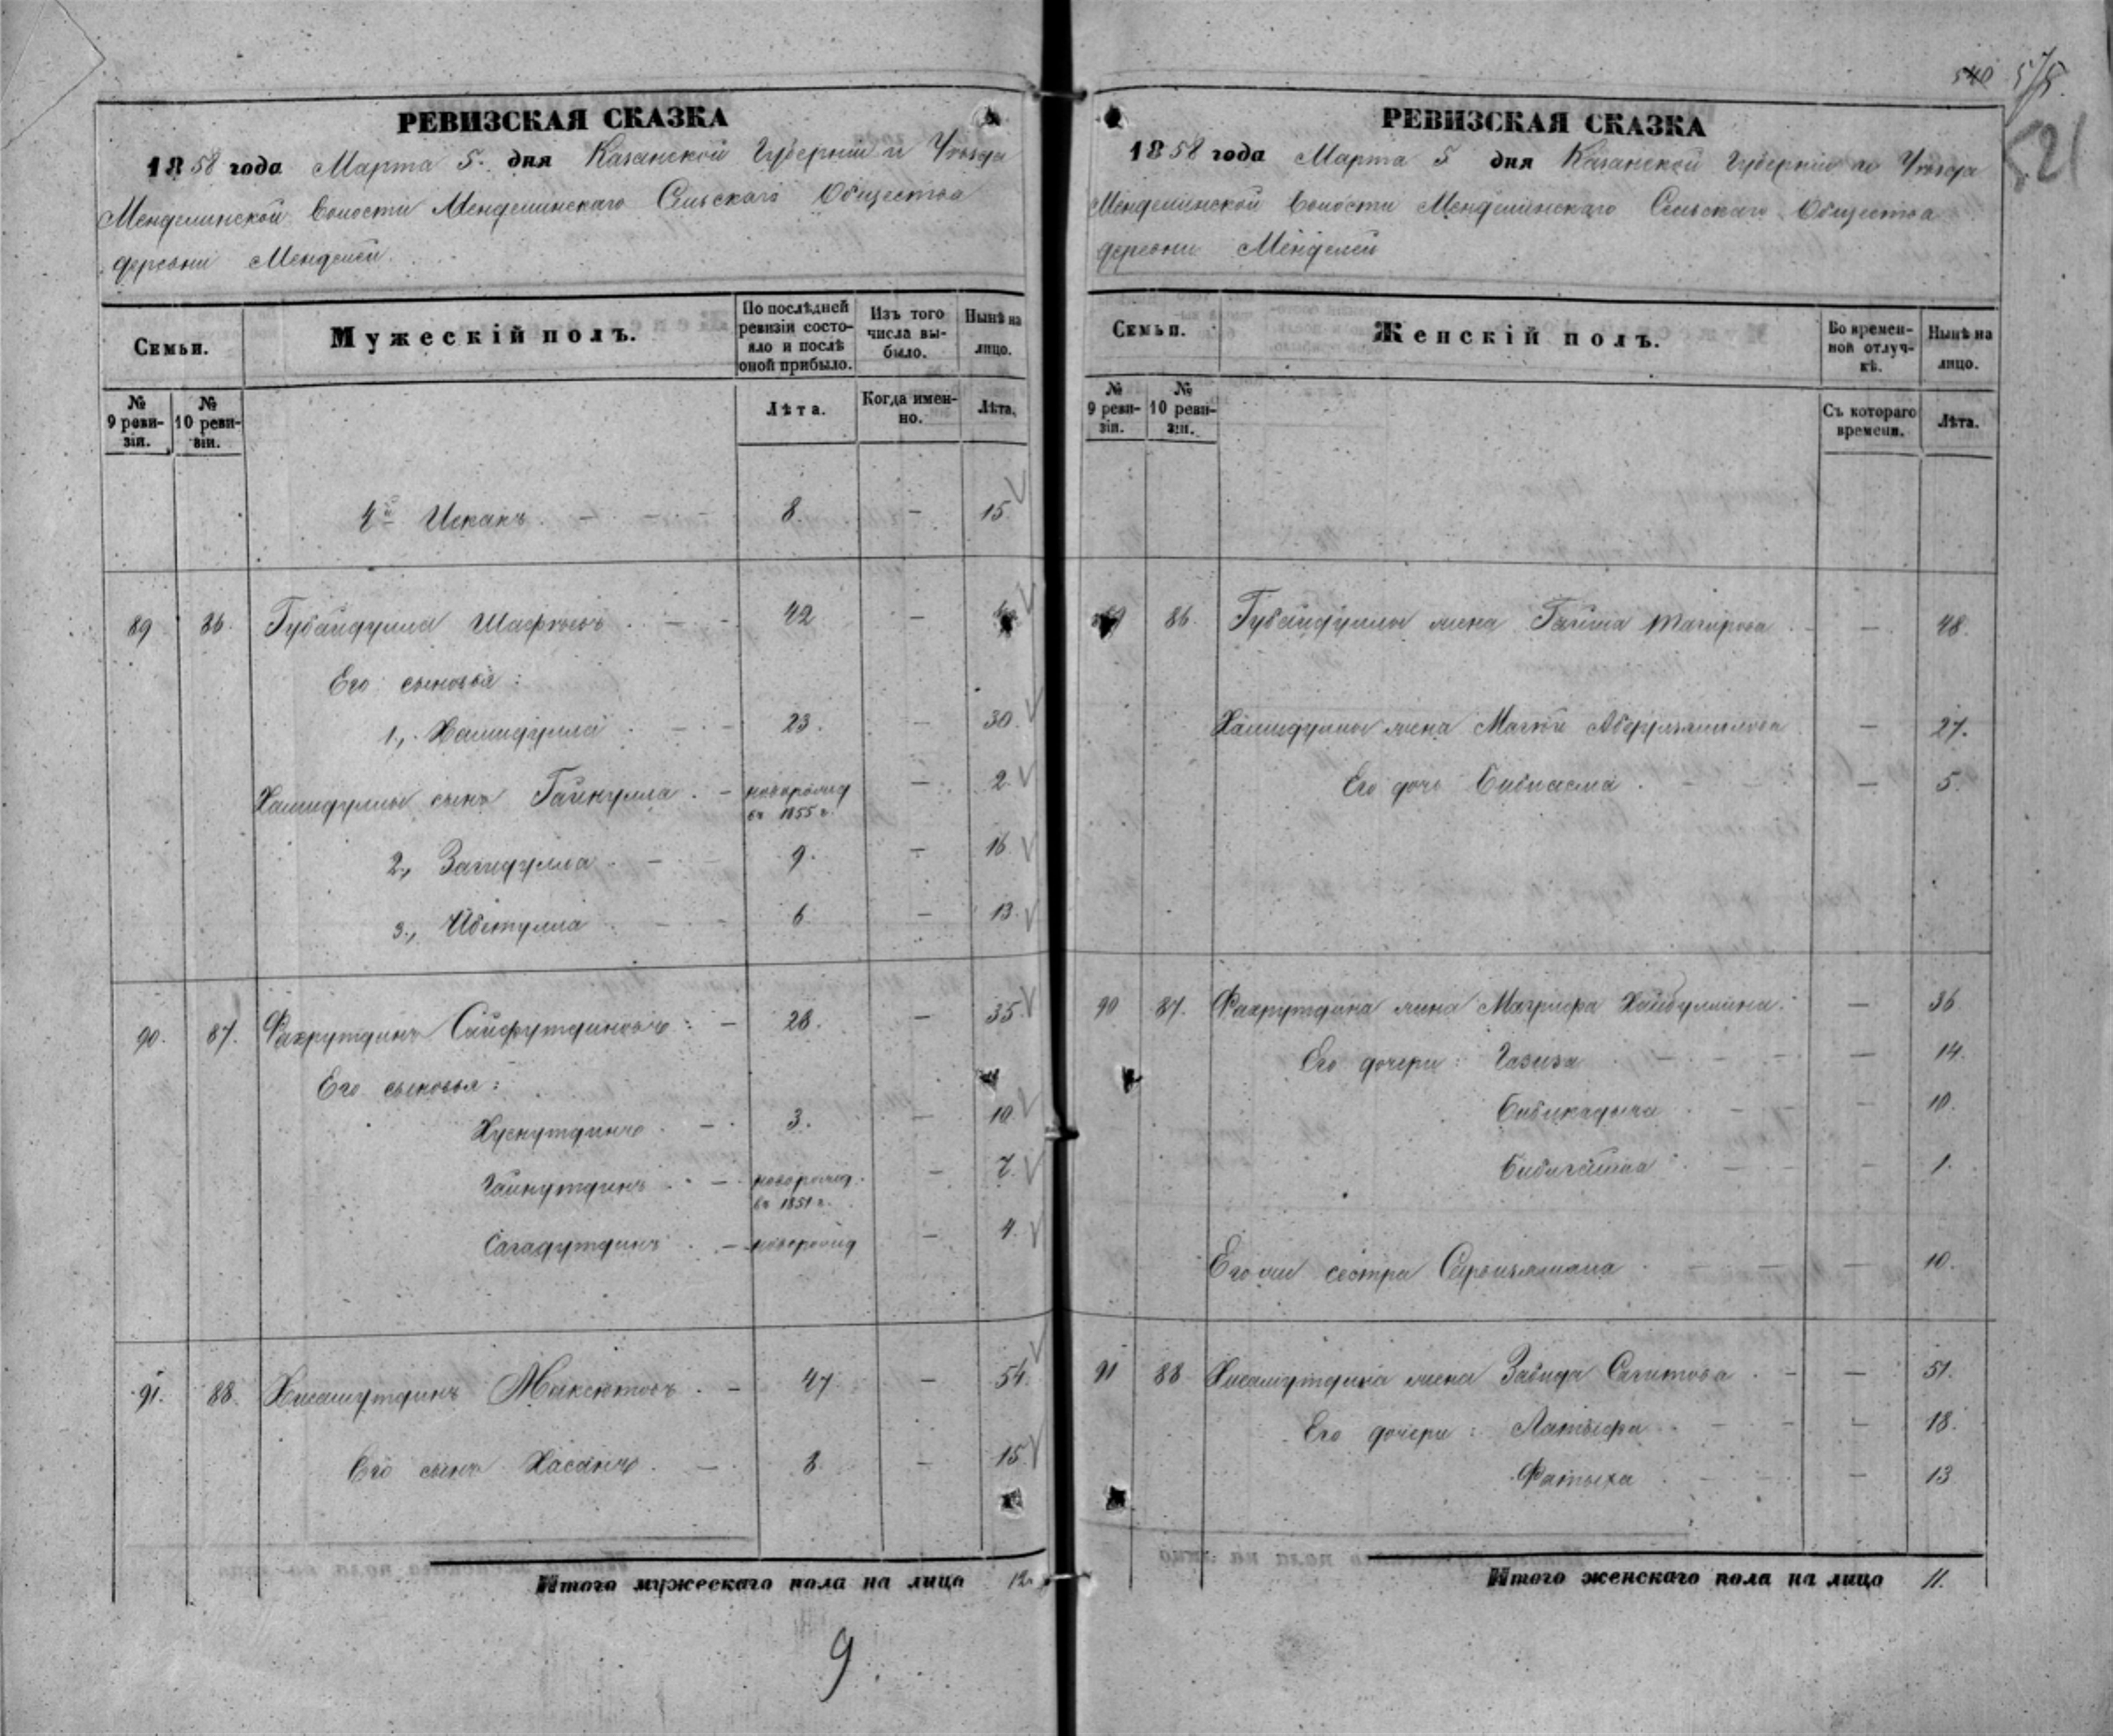 РЕВИЗСКАЯ СКАЗКА
1858 года Марта 5. дня Казанской Губерніи и Уѣзда
Менделинской Волости Менделинскаго Сельскаго Общества
деревни Менделей
Семьи.
Мужескій полъ.
По послѣдней ревизіи состояло и послѣ оной прибыло.
Изъ того числа выбыло.
Нынѣ на лицо.
№ 9 ревизіи.
№ 10 ревизіи.
Лѣта.
Когда именно.
Лѣта.
4й Исхакъ. — 8. — 15.
89 86. Губайдулла Шафѣевъ. — 42 —
Его сыновья:
1., Хамидулла — 23. — 30.
Хамидуллы сынъ Гайнулла. — новорожд въ 1855 г. — 2.
2., Загидулла. — 9. — 16.
3., — 6. — 13.
90. 87. Фахрутдинъ Сайфутдиновъ: — 28. — 35.
Его сыновья:
Хуснутдинъ. — 3. — 10.
Гайнутдинъ. — новорожд. въ 1851 г. — 7.
Сагадутдинъ. — новорожд — 4.
91. 88. Хисамутдинъ Максютовъ. — 47 — 54.
Его сынъ Хасанъ. — 8. — 15
Итого мужескаго пола на лицо 12.
9.
540 575.
521
РЕВИЗСКАЯ СКАЗКА
1858 года Марта 5 дня Казанской Губерніи и Уѣзда
Менделинской Волости Менделинскаго Сельскаго Общества
деревни Менделей
Семьи.
Женскій полъ.
Во временной отлучкѣ.
Нынѣ на лицо.
№ 9 ревизіи.
№ 10 ревизіи.
Съ котораго времени.
Лѣта.
86. Губайдуллы жена Тагирова — 48.
Хамидуллы жена — 27.
Его дочь Бибиасма. — 5.
90 87. Фахрутдина жена Магруфа Хайбуллина. — 36
Его дочери: Газиза — 14.
Бибикадыча — 10.
Бибигайша — 1.
Его же сестра — 10.
91 88 Хисамутдина жена Забида Сагитова. — 51.
Его дочери: Латыфа — 18.
Фатыха — 13
Итого женскаго пола на лицо 11.